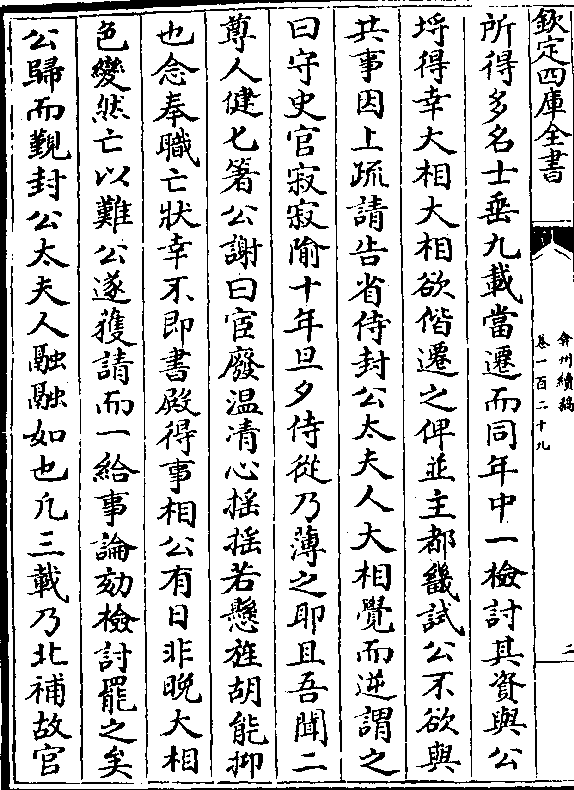 欽定四庫全書
弇州續稿
卷一百二十九
二
所得多名士垂九載當遷而同年中一檢討其資與公
埒得幸大相大相欲偕遷之俾並主都畿試公不欲與
共事因上疏請告省侍封公太夫人大相覺而逆謂之
曰守史官寂寂隃十年旦夕侍從乃薄之耶且吾聞二
尊人健匕箸公謝曰宦廢温凊心搖搖若懸旌胡能抑
也念奉職亡狀幸不即書殿得事相公有日非晚大相
色變然亡以難公遂獲請而一給事論劾檢討罷之矣
公歸而覲封公太夫人融融如也凡三載乃北補故官